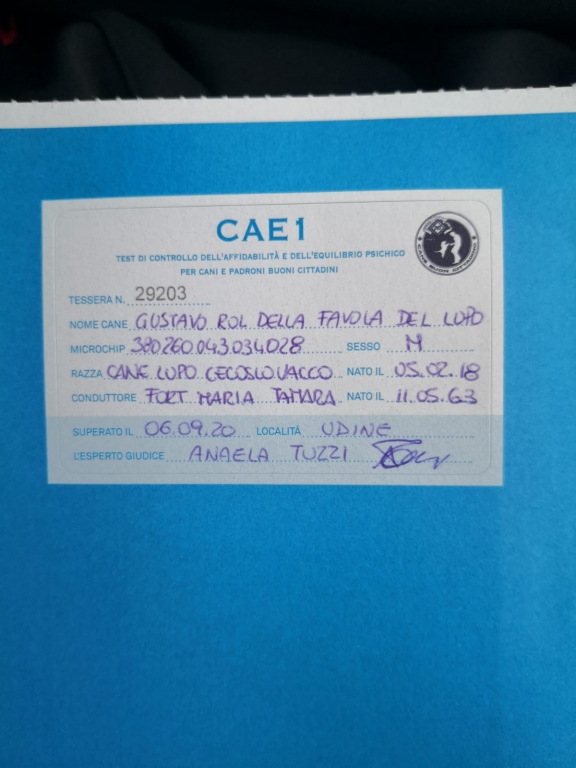 CAE1
TEST DI CONTROLLO DELL'AFFIDABILITÀ E DELL'EQUILIBRIO PSICHICO
PER CANI E PADRONI BUONI CITTADINI
TESSERA N. 29203
NOME CANE GUSTAVO ROL DELLA FAVOLA DEL LUPO
MICROCHIP 380260043034028 SESSO M
RAZZA CANE LUPO CECOSLOVACCO NATO IL 05.02.18
CONDUTTORE FORT MARIA TAMARA NATO IL 11.05.63
SUPERATO IL 06.09.20 LOCALITÀ UDINE
L'ESPERTO GIUDICE ANAELA TUZZI
CANE BUON CITTADINO